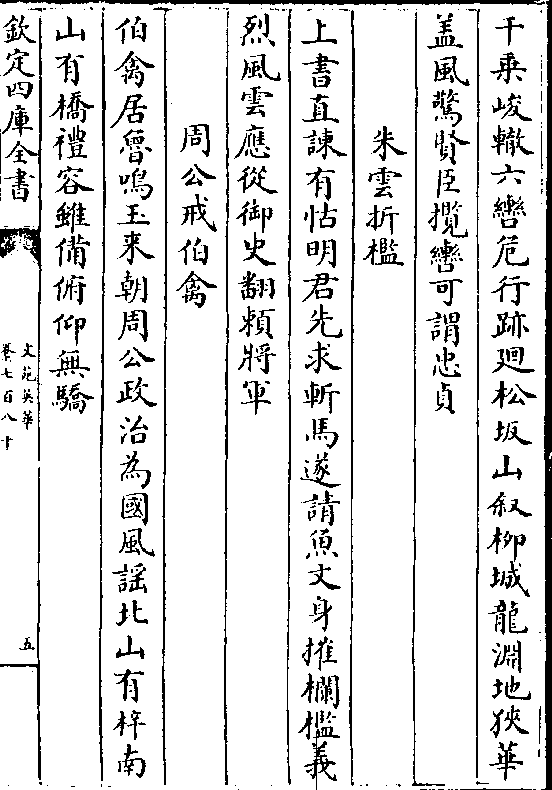 千乗峻轍六轡危行跡廻松坂山叙柳城龍淵地狹華
盖風驚賢臣攬轡可謂忠貞
朱雲折檻
上書直諌有怙明君先求斬馬遂請魚文身摧欄檻義
烈風雲應從御史翻頼將軍
周公戒伯禽
伯禽居魯鳴玉来朝周公政治為國風謡北山有梓南
山有橋禮容雖備俯仰無驕
欽定四庫全書
文苑英華
卷七百八十
五